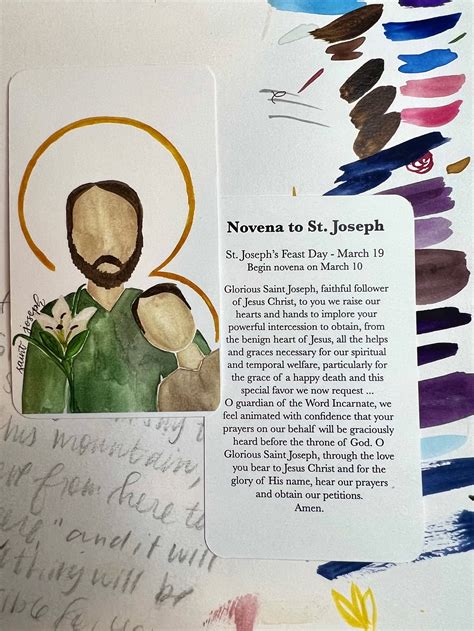 saint joseph
Novena to St. Joseph
St. Joseph's Feast Day - March 19
Begin novena on March 10
Glorious Saint Joseph, faithful follower
of Jesus Christ, to you we raise our
hearts and hands to implore your
powerful intercession to obtain, from
the benign heart of Jesus, all the helps
and graces necessary for our spiritual
and temporal welfare, particularly for
the grace of a happy death and this
special favor we now request ...
O guardian of the Word Incarnate, we
feel animated with confidence that your
prayers on our behalf will be graciously
heard before the throne of God. O
Glorious Saint Joseph, through the love
you bear to Jesus Christ and for the
glory of His name, hear our prayers
and obtain our petitions.
Amen.
to
his mountain,
from here to
" and it will
thing will be